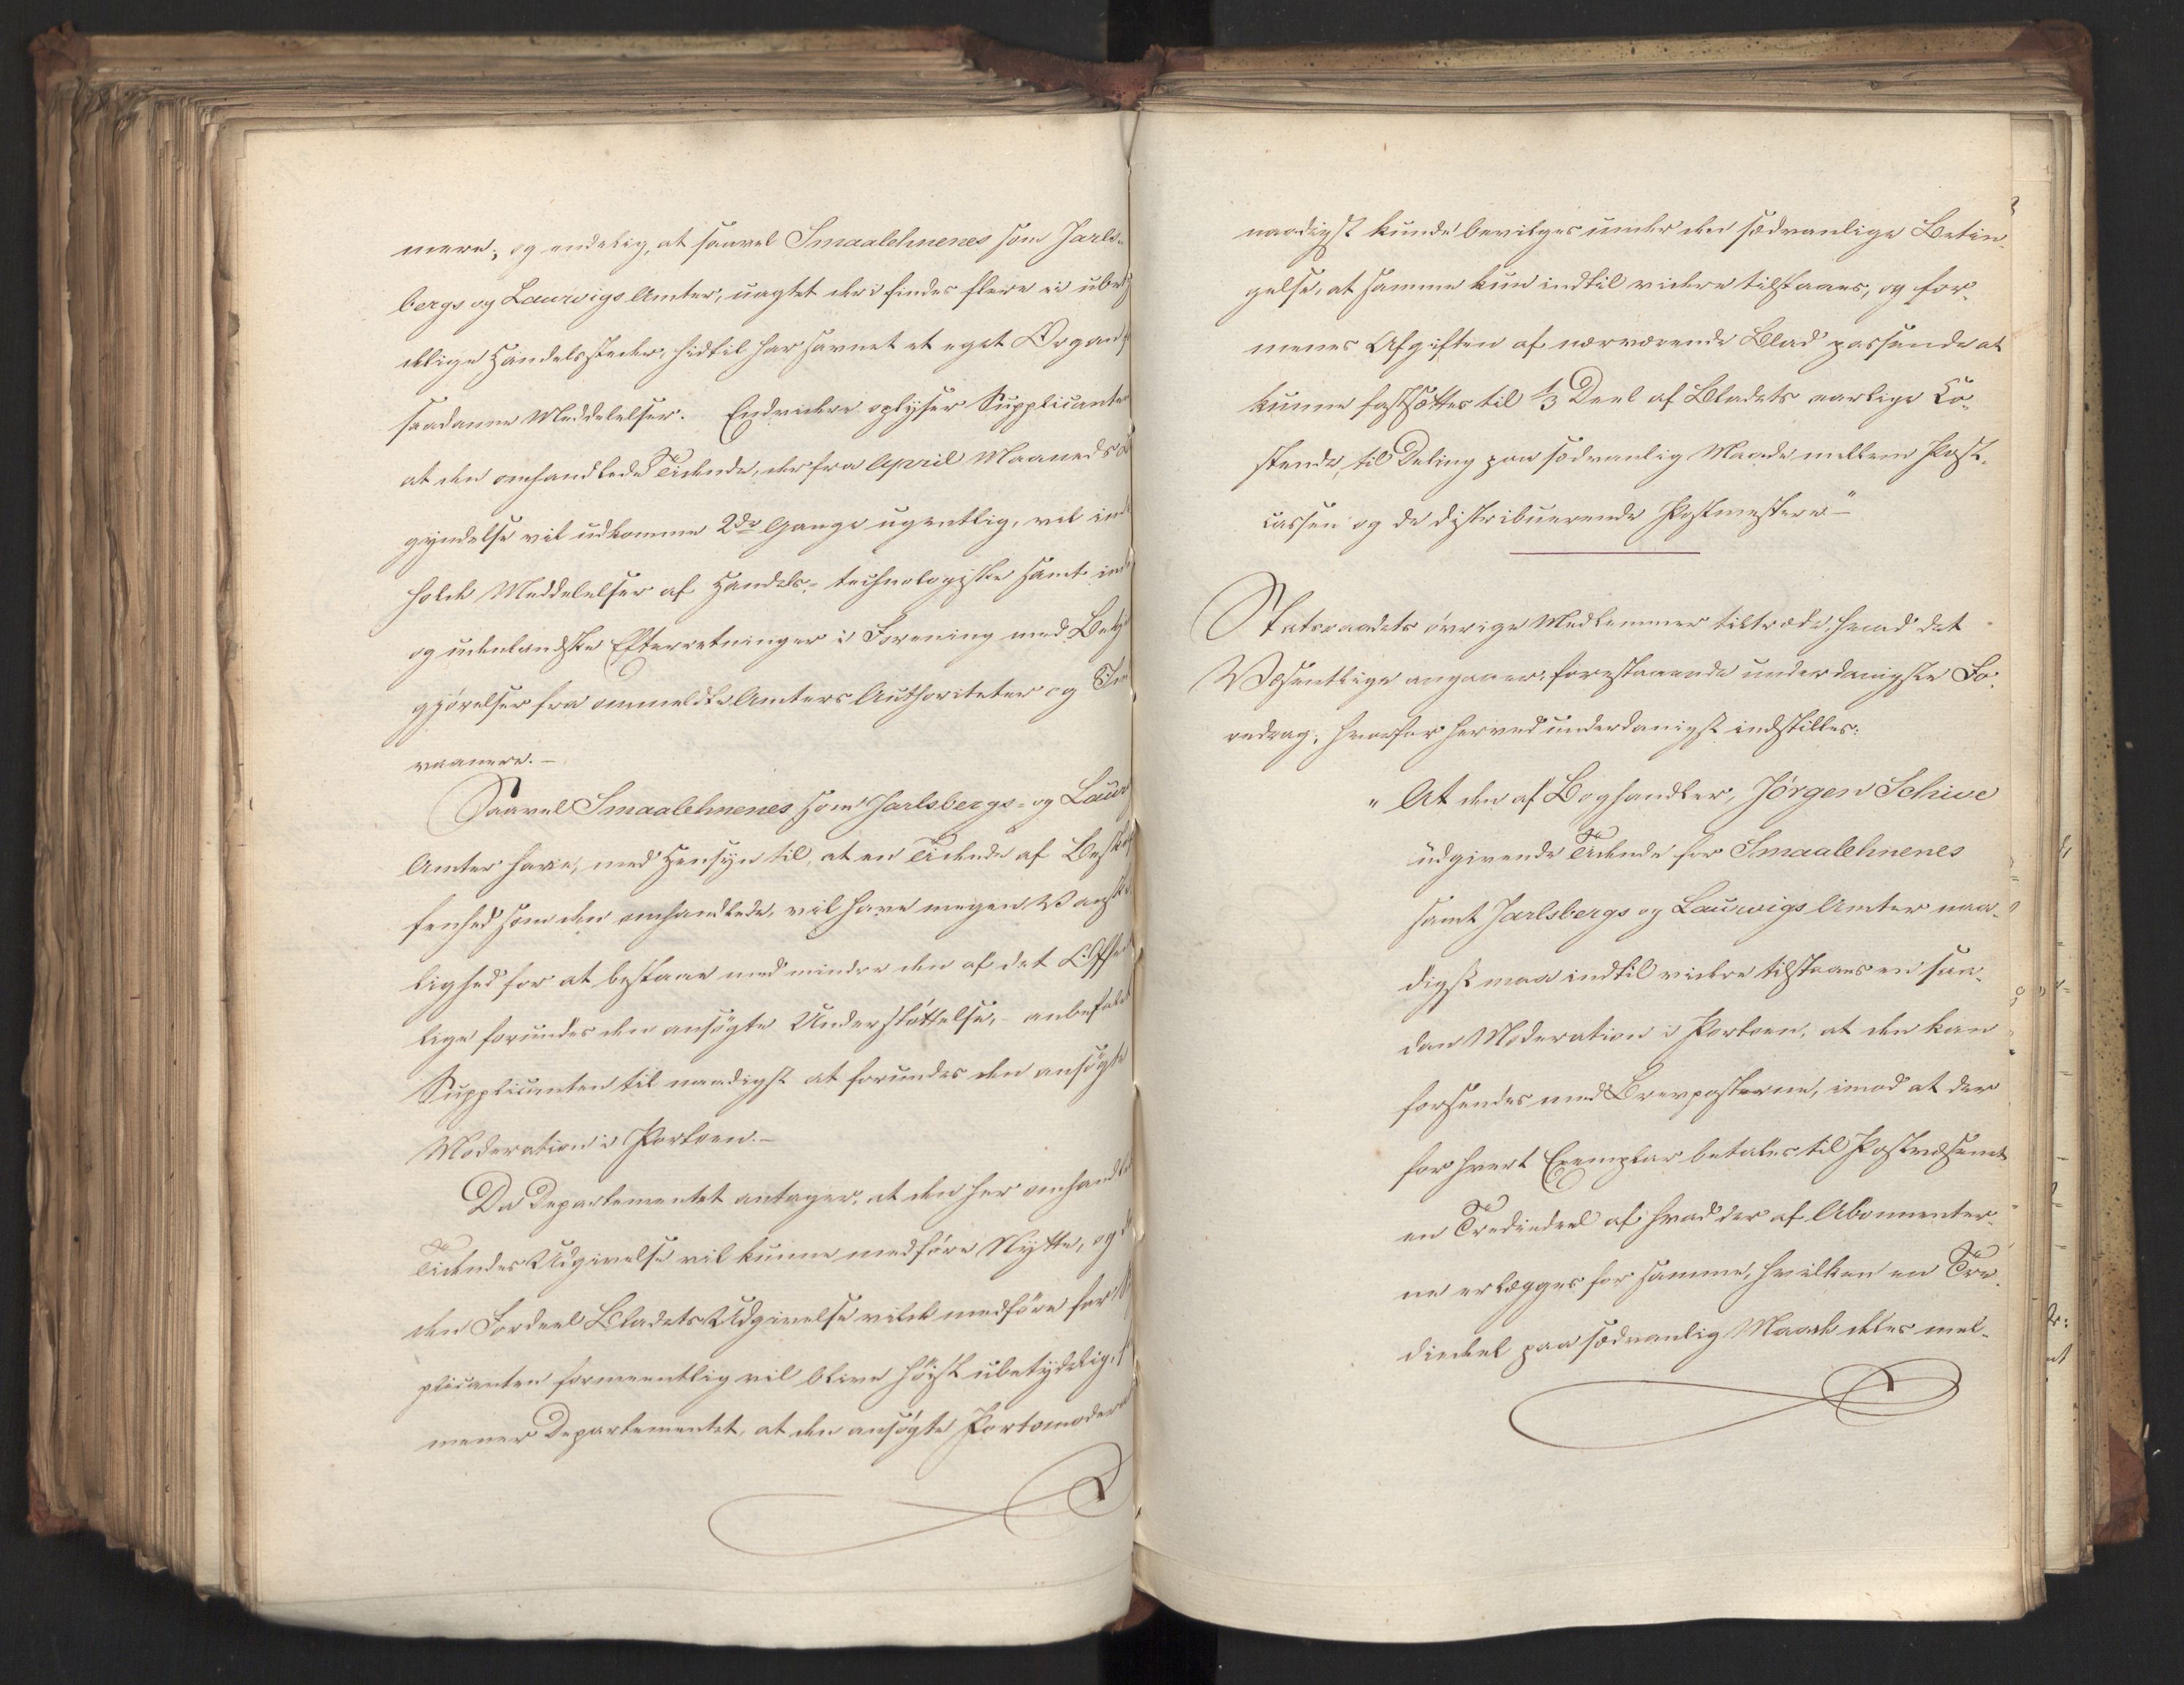 mere; og endelig, at saavel Smaalehnenes som Jarls-
bergs og Laurvigs Amter, uagtet deri findes flere ei ubety
delige Handelsstæder, hidtil har savnet et eget Organ f
saadanne Meddelelser. Endvidere oplyser Supplicanten
at den omhandlede Tidende, der fra April Maaneds B
gyndelse vil udkomme 2de Gange ugentlig, vil inde
holde Meddelelser af Handels-, technologiske samt ind
og udenlandske Efterretninger i Forening med Bekj
gjørelser fra ommeldte Amters Authoriteter og In
vaanere.-
Saavel Smaalehnenes som Jarlsbergs- og Laurv
Amter have, med Hensyn til, at en Tidende af Beskaf
fenhed som den omhandlede, vil have megen Vanske
lighed for at bestaae med mindre den af det Offent
lige forundes den ansøgte Understøttelse,- anbefalet
Supplicanten til naadigst at forundes den ansøgte
Moderation i Portoen.-
Da Departementet antager, at den her omhandlede
Tidendes Udgivelse vil kunne medføre Nytte, og d
den Fordeel Bladets Udgivelse vilde medføre for S
plicanten formeentlig vil blive høist ubetydelig, f
mener Departementet, at den ansøgte Portomodera
naadigst kunde bevilges under den sædvanlige Betin-
gelse, at samme kun indtil videre tilstaaes, og for-
menes Afgiften af nærværende Blad passende at
kunne fastsættes til 1/3 Deel af Bladets aarlige Ko-
stende, til Deling paa sædvanlig Maade mellem Post-
cassen og de distribuerende Postmestere"-
Statsraadets øvrige Medlemmer tiltræde, hvad det
Væsentlige angaaer, forestaaende underdanigste Fo-
redrag, hvorfor herved underdanigst indstilles:
" At den af Boghandler, Jørgen Schiwe
udgivende Tidende for Smaalehnenes
samt Jarlsbergs og Laurvigs Amter naa-
digst maa indtil videre tilstaaes en saa-
dan Moderation i Portoen, at den kan
forsendes med Brevposterne, imod at der
for hvert Exemplar betales til Postvæsenet
en Trediedeel af hvad der af Abonnenter-
ne erlægges for samme, hvilken en Tre-
diedeel paa sædvanlig Maade deles mel-